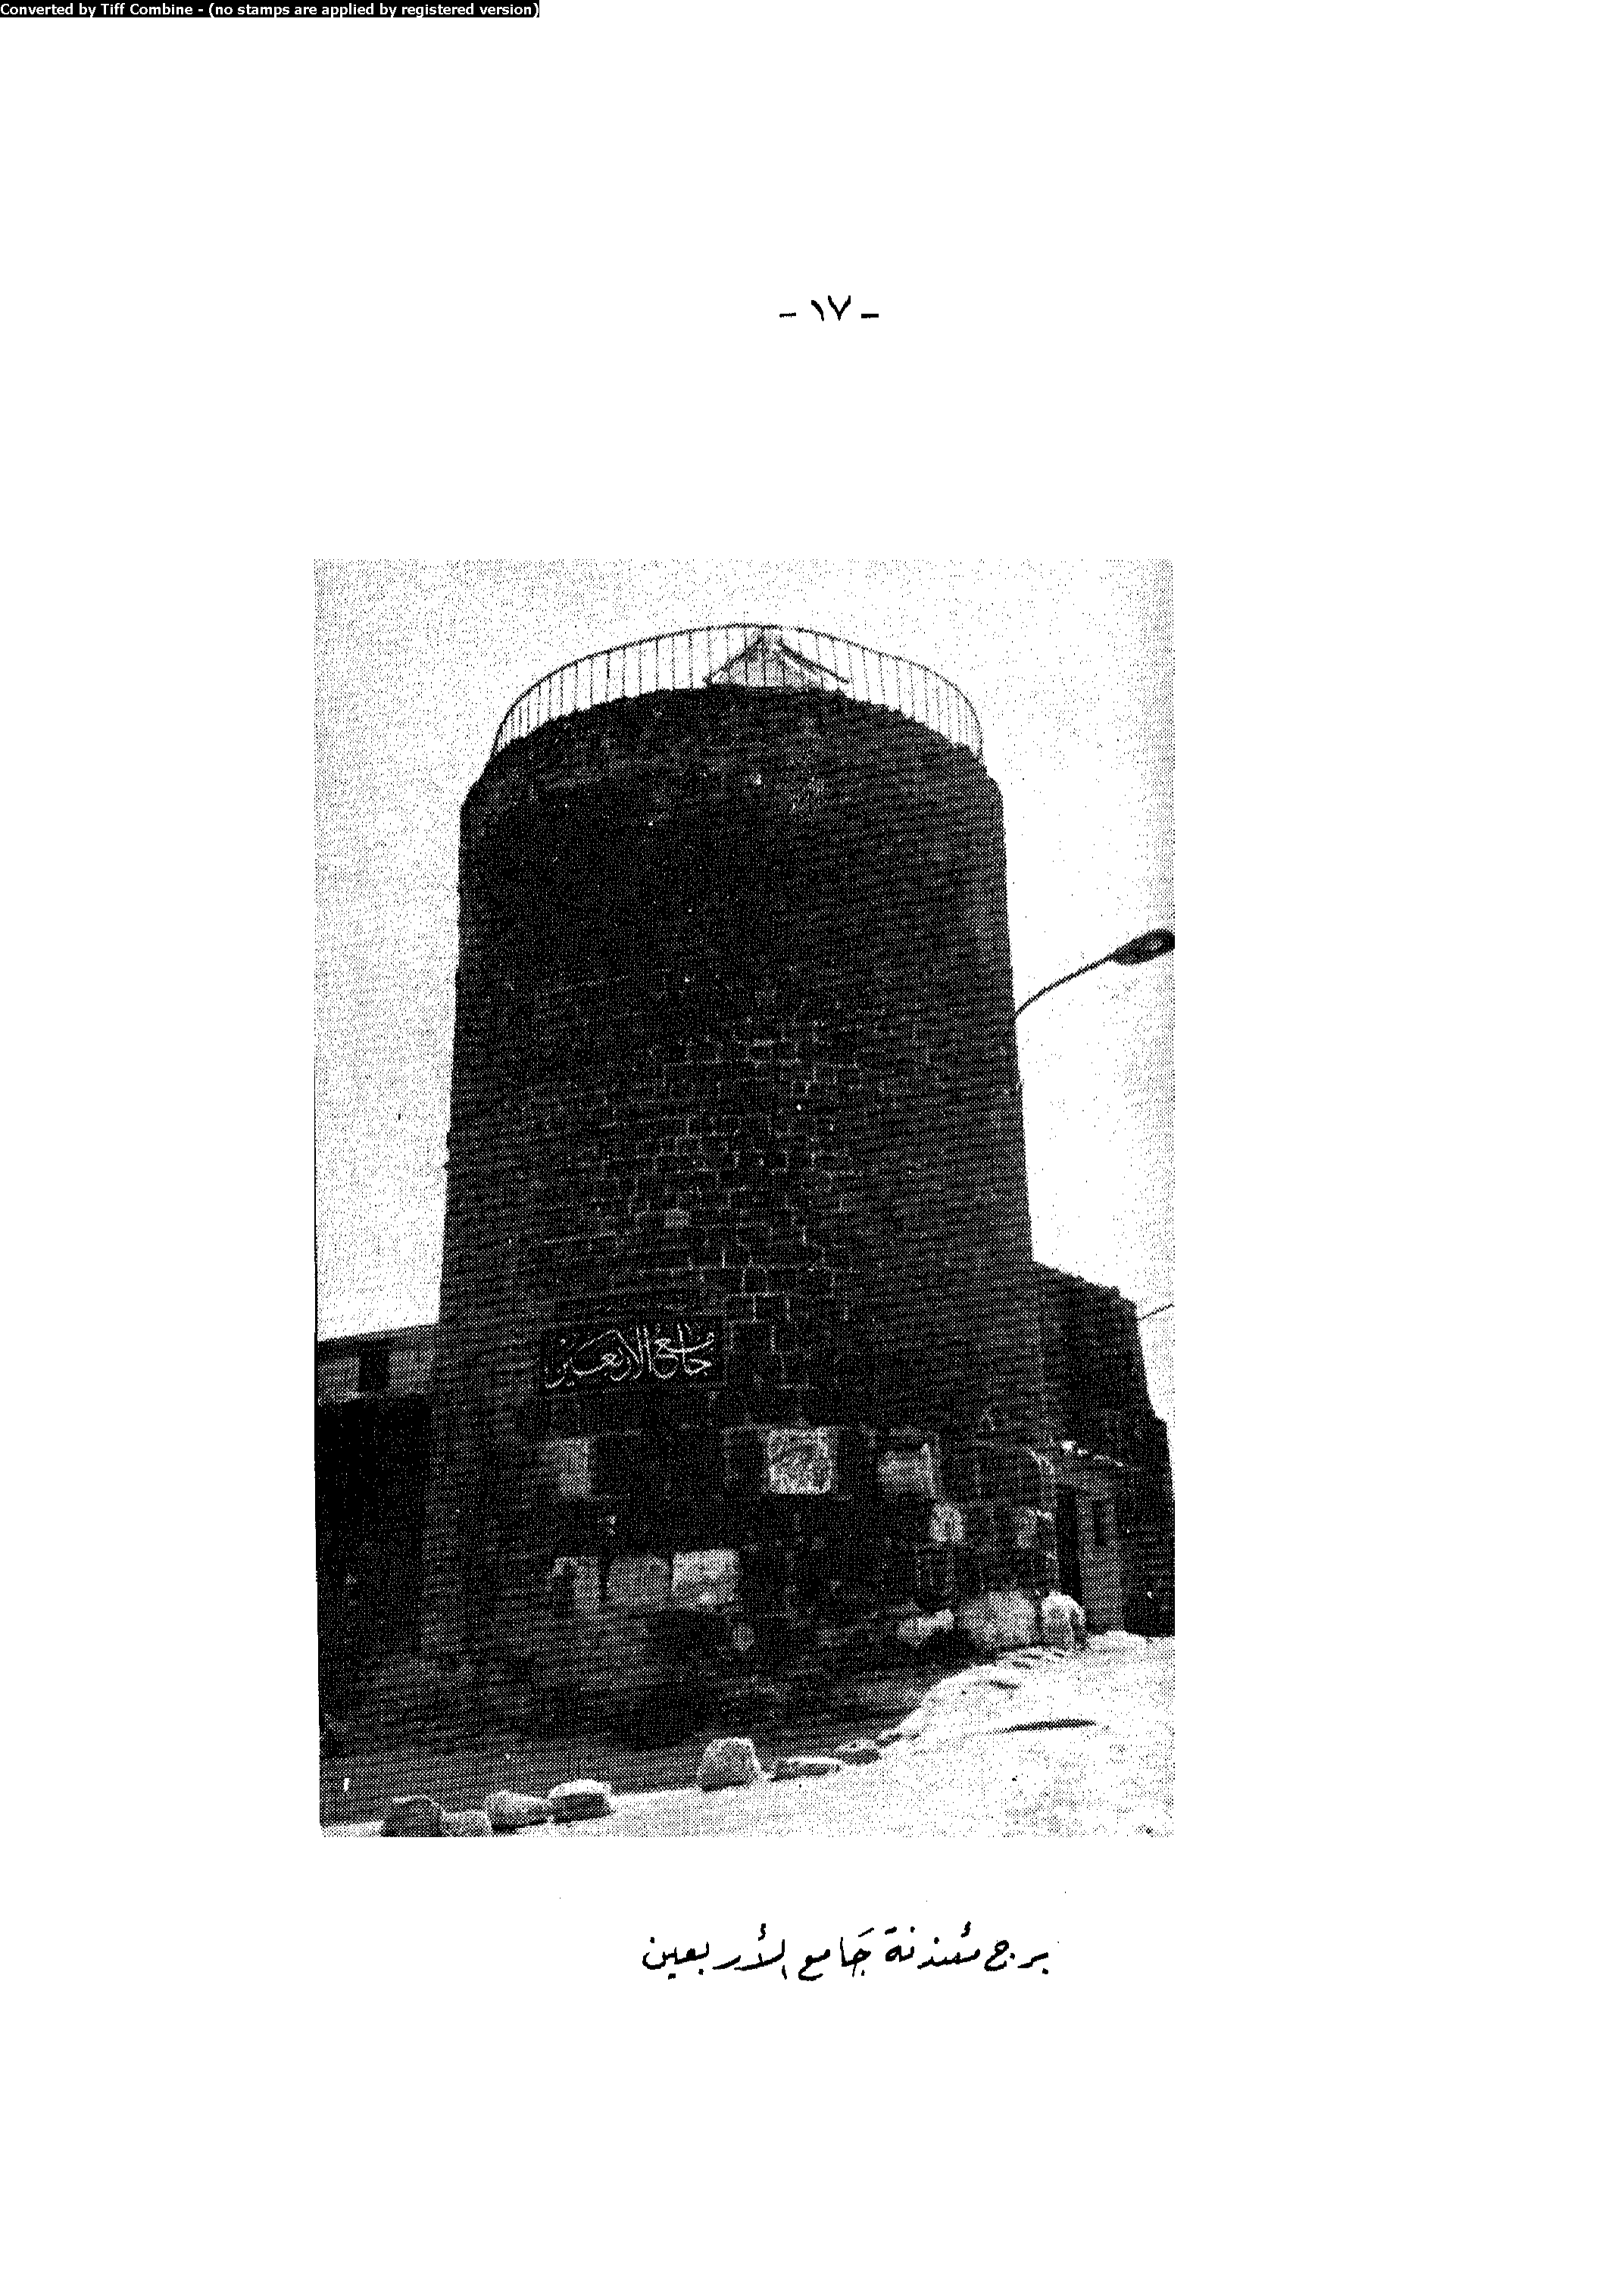 Converted by Tiff Combine - (no stamps are applied by registered version)
- ١٧ -
جامع الاربعين
برج مئذنة جَامع الأربعين